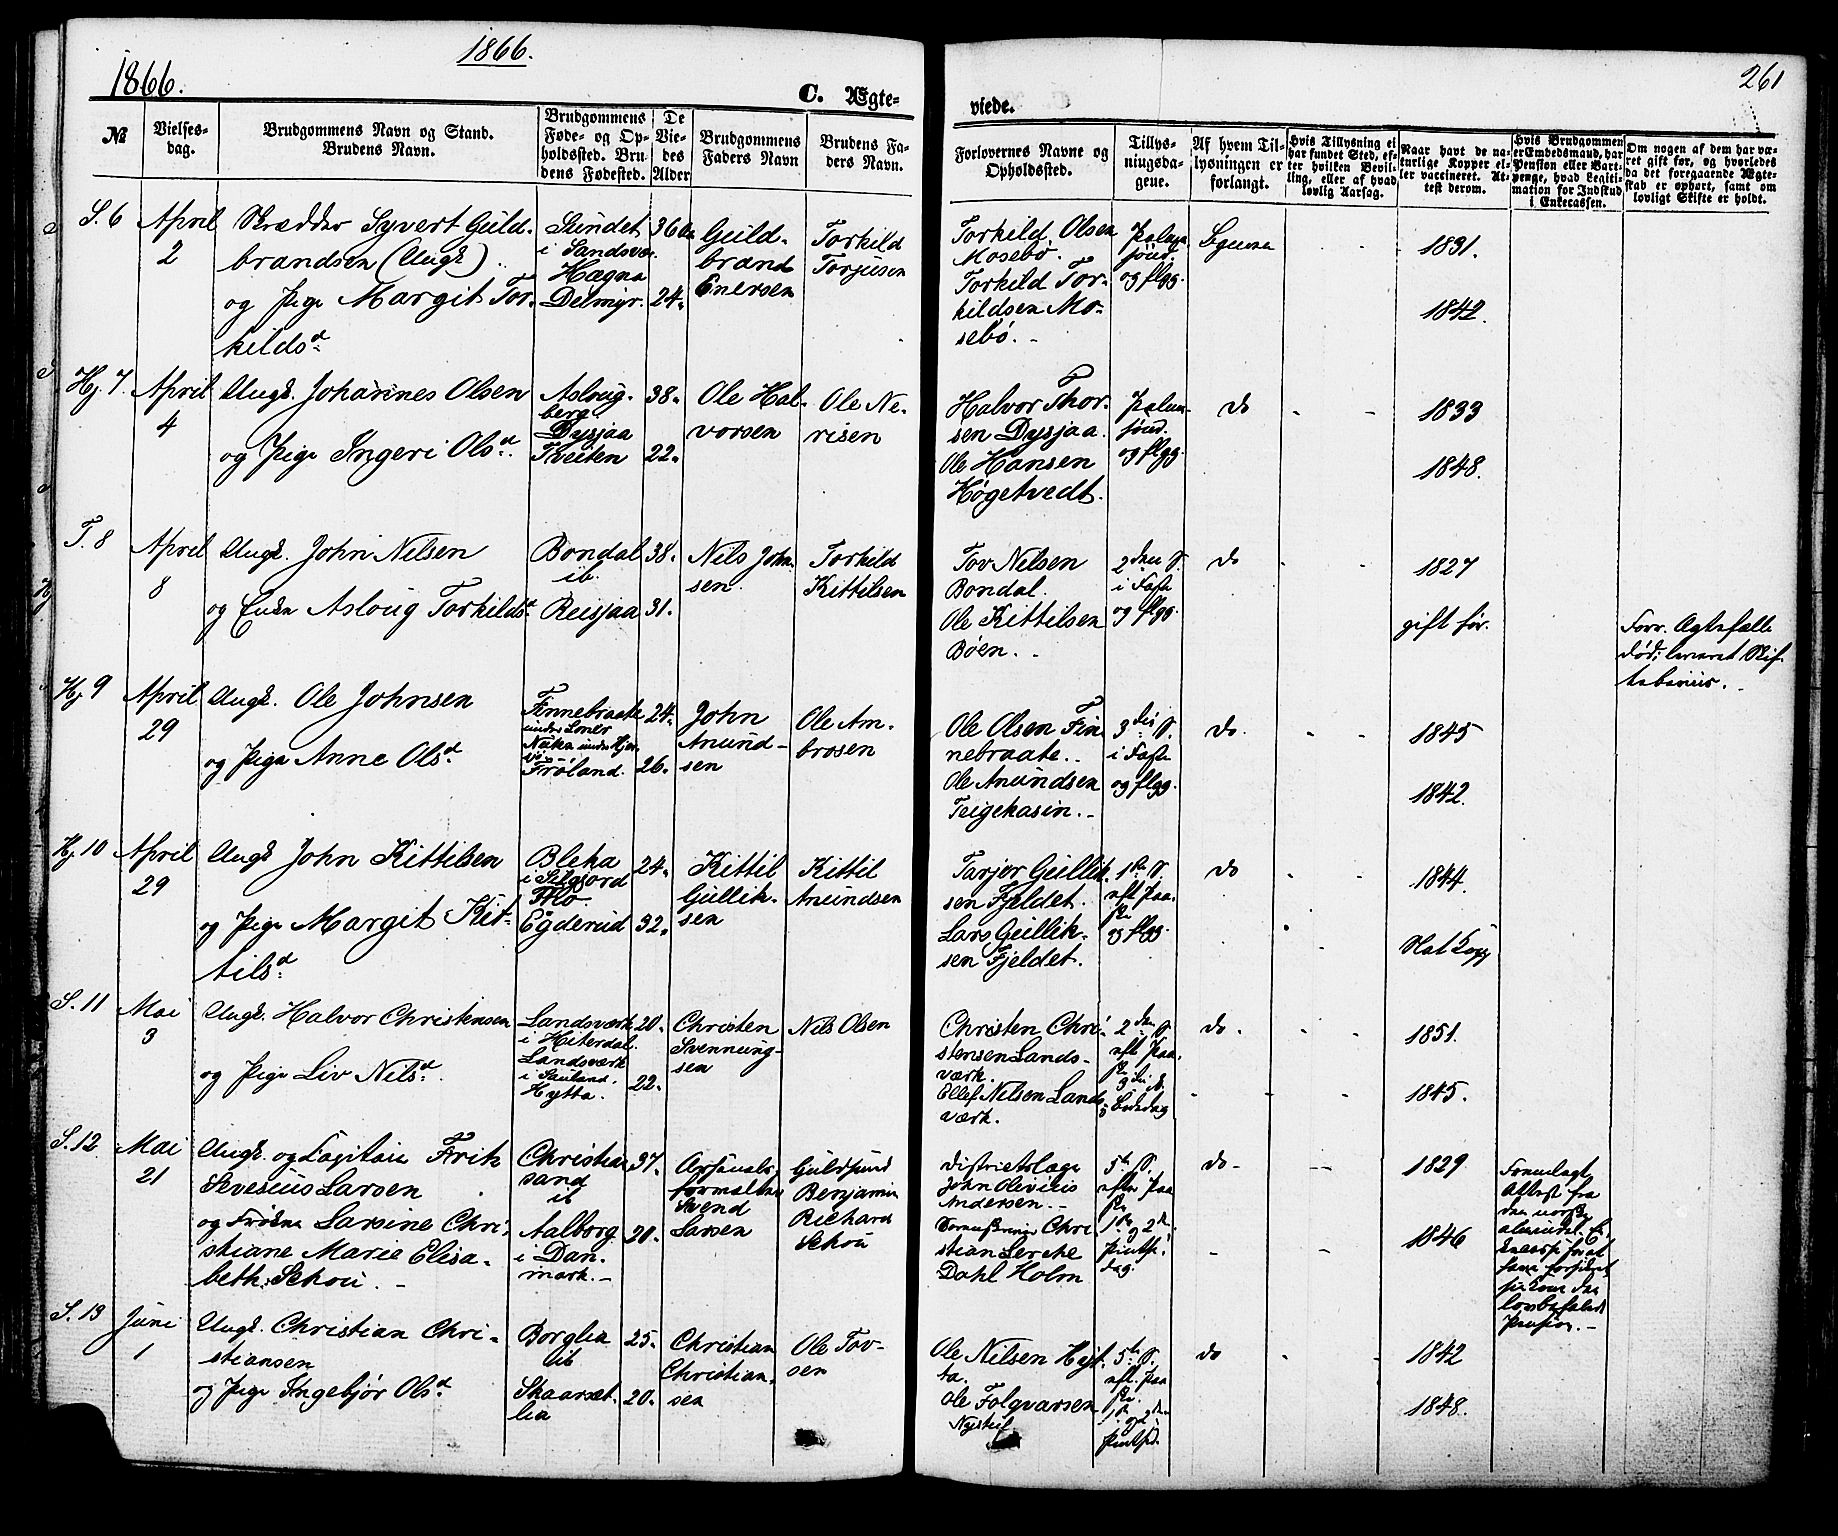 1866.
1866.
261
C. Ægte-
viede.
№
Vielses-
dag.
Brudgommens Navn og Stand.
Brudens Navn.
Brudgommens
Føde- og Op-
holdssted. Bru-
dens Fødested.
De
Vie-
des
Alder
Brudgommens
Faders Navn
Brudens Fa-
ders Navn.
Forlovernes Navne og
Opholdssted.
Tillys-
ningsda-
gene.
Af hvem Til-
lysningen er
forlangt.
Hvis Tillysning ei
har fundet Sted, ef-
ter hvilken Bevil-
ling, eller af hvad
lovlig Aarsag.
Naar havt de na-
turlige Kopper el-
ler vaccineret. At-
test derom.
Hvis Brudgommen
er Embedsmand, har
Pension eller Vart-
penge, hvad Legiti-
mation for Indskud
i Enkecassen.
Om nogen af dem har væ-
ret gift før, og hvorledes
da det foregaaende Ægte-
skab er ophørt, samt om
lovligt Skifte er holdt.
S. 6
April
2
Skrædder Syvert Guld-
brandsen (Ungk)
og Pige Margit Tor-
kildsd
Sundet
i Sandsvær
Hægna
Delmyr.
36
24
Guld-
brand
Enersen
Torkild
Torjusen
Torkild Olsen
Mosebø.
Torkild Tor-
kildsen Mo-
sebø.
og flgg.
1831.
1842.
Hj. 7.
April
4
Ungk. Johannes Olsen
og Pige Ingeri Olsd.
Asloug-
berg
Dysjaa
Tveiten
38
22
Ole Hal-
vorsen
Ole Ne-
risen
Halvor Thor-
sen Dysjaa.
Ole Hansen
Høgetvedt.
og flgg.
do
1833
1848.
T. 8
April
8
Ungk. John Nilsen
og Enke Asloug Torkildsd
Bondal
ib.
Reisjaa
38
31.
Nils John-
sen
Torkild
Kittilsen
Tov Nilsen
Bondal.
Ole Kittilsen
Bøen.
2den S.
i Faste
og flgg.
do
1827
gift før.
Forr. Ægtefælle
død; leveret Skif-
tebeviis.
Hj 9
April
29
Ungk. Ole Johnsen
og Pige Anne Olsd
Finnebraate
Frøland.
24
26.
John
Anund-
sen
Ole Am-
brosen
Ole Olsen Fin-
nebraate.
Ole Anundsen
Teigekasin.
3die S.
i Faste
og flgg.
do.
1845
1842.
Hj. 10
April
29
Ungk John Kittilsen
og Pige Margit Kit-
tilsd
Bleka
i Silgjord
Mo.
Egderud
24
32
Kittil
Gullik-
sen
Kittil
Anundsen
Tarjer Gullik-
sen Fjeldet.
Lars Gullik-
sen Fjeldet.
1ste S.
eft. Paa-
ske
og flgg.
do
1844.
Hat Kopp
S. 11
Mai
3
Ungk. Halvor Christensen
og Pige Liv Nilsd.
Landsværk
i Hiterdal.
Landsværk
i Sauland.
Hytta.
20
22
Christen
Svennung-
sen
Nils Olsen
Christen Chri-
stensen Lands-
værk.
Ellef Nilsen Lands-
værk.
2den S.
eft. Paa-
ske
do.
1851.
1845.
S. 12
Mai
21
Ungk. og Capitain Frik
Severius Larsen
og Frøken Larsine Chri-
stiane Marie Elisa-
beth Schou.
Christian-
sand
ib
Aalborg
i Dan-
mark.
37
20.
Arsenals-
forvalter
Svend
Larsen
Guldsmed
Benjamin
Richard
Schou
Districtslæge
John Olivius
Andersen.
Chri-
stian Lerche
Dahl Holm
5te S.
efter Paa-
ske
1ste og 2den
Pintse-
dag.
do
1829
1846
Fremlagt
Attest fra
den norske
Pension.
S. 13
Juni
1
Ungk. Christian Chri-
stiansen
og Pige Ingebjør Olsd
Borglia
ib
Skaarset-
lia
25
20
Christian
Christian-
sen
Ole Tov-
sen
Ole Nilsen Hyt-
ta.
Ole Folqvarsen
5te S.
eft. Paa
ske
do
1842
1848.